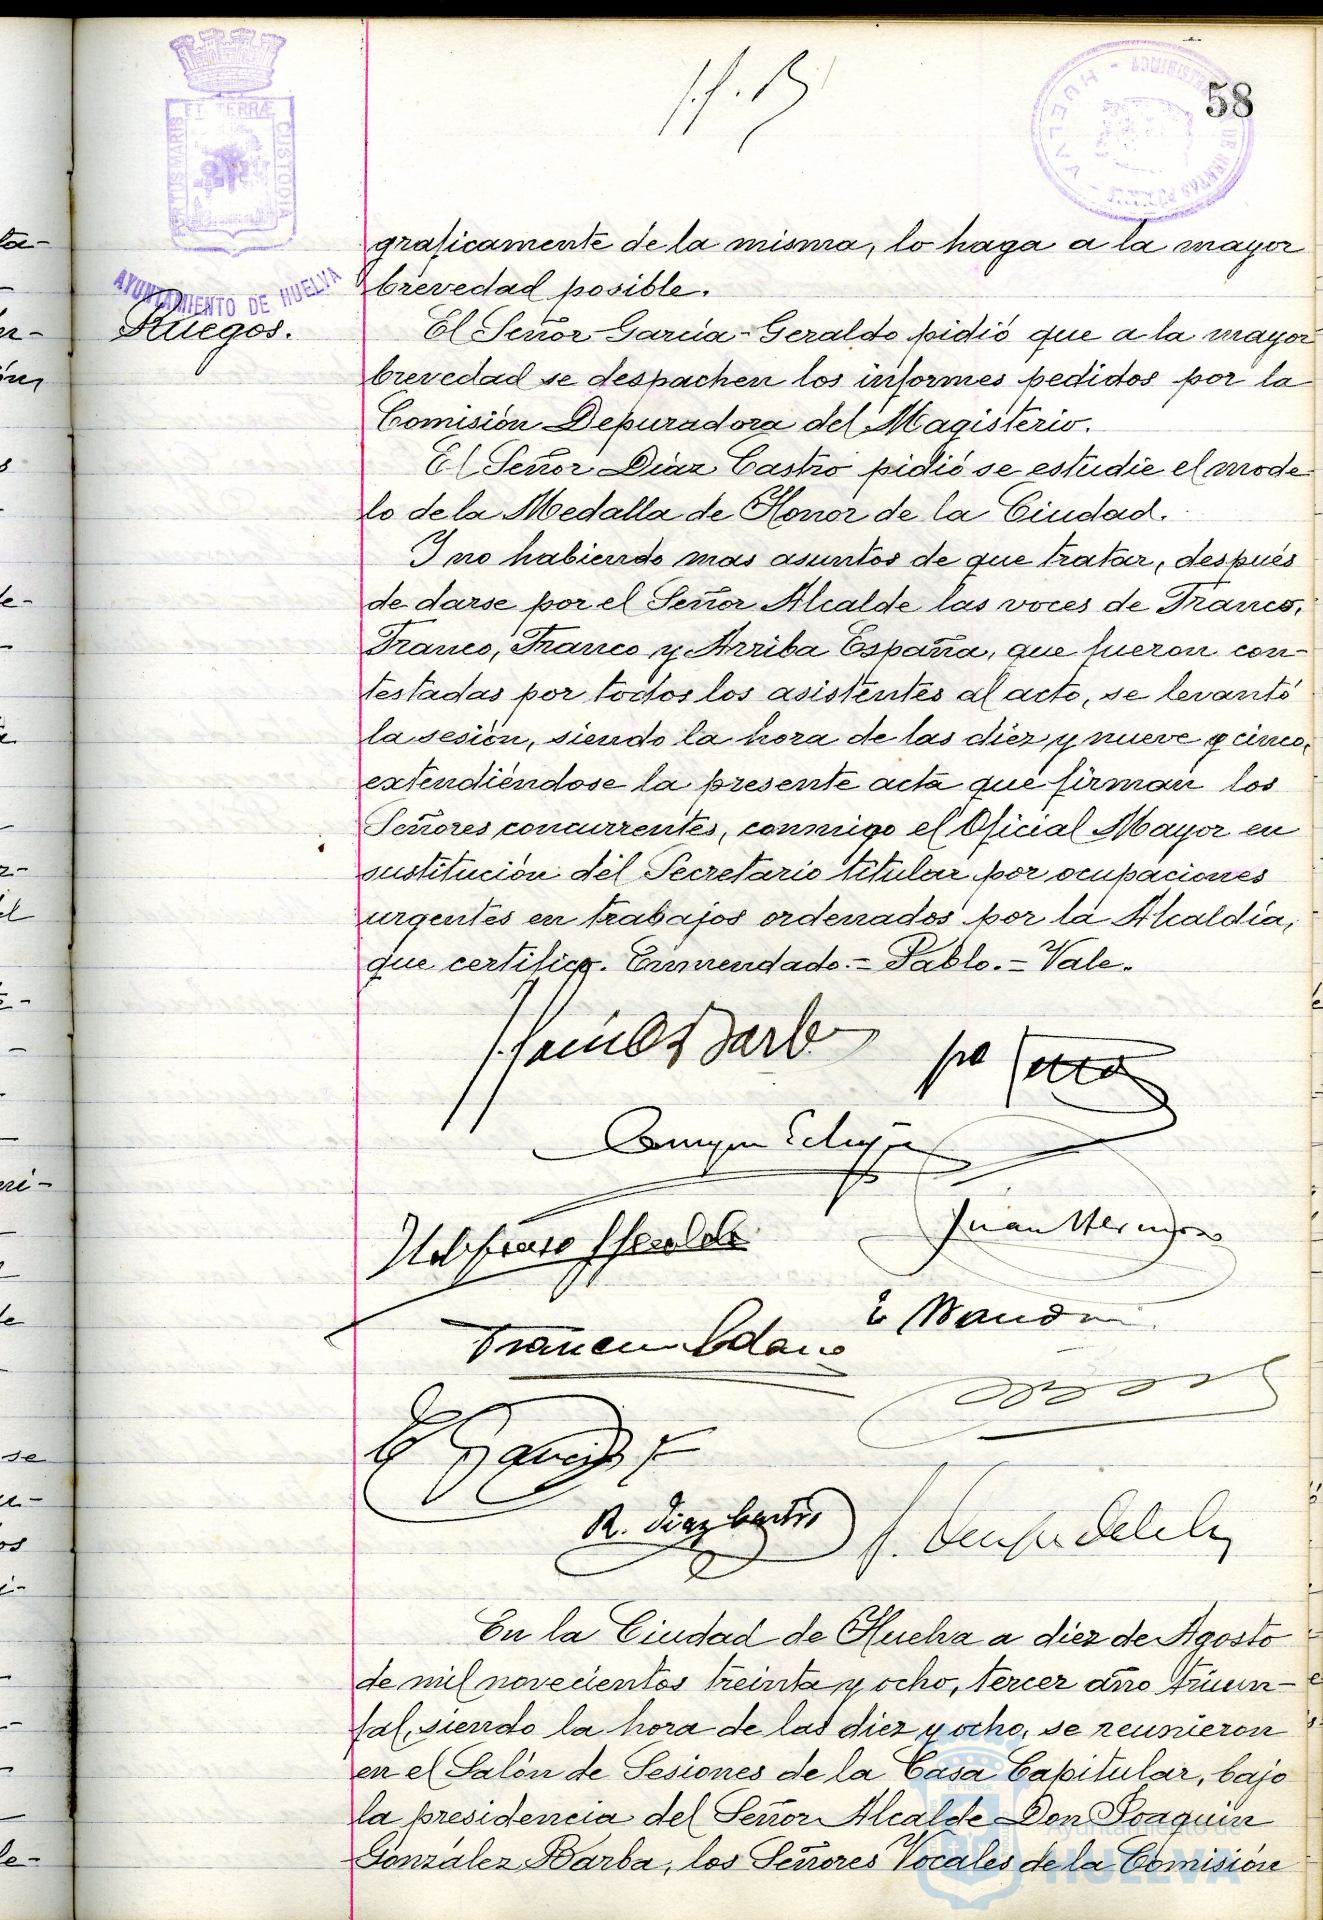 58
ET TERRÆ
PORTUS MARIS
CUSTODIA
AYUNTAMIENTO DE HUELVA
HUELVA
graficamente de la misma, lo haga a la mayor
brevedad posible.
Ruegos.
El Señor García-Geraldo pidió que a la mayor
brevedad se despachen los informes pedidos por la
Comisión Depuradora del Magisterio.
El Señor Díaz Castro pidió se estudie el mode
lo de la Medalla de Honor de la Ciudad.
Y no habiendo mas asuntos de que tratar, después
de darse por el Señor Alcalde las voces de Franco,
Franco, Franco y Arriba España, que fueron con-
testadas por todos los asistentes al acto, se levantó
la sesión, siendo la hora de las diez y nueve y cinco,
extendiéndose la presente acta que firman los
Señores concurrentes, conmigo el Oficial Mayor en
sustitución del Secretario titular por ocupaciones
urgentes en trabajos ordenados por la Alcaldía,
que certifico. Enmendado.= Pablo.= Vale.
Barb
Juan Hermoso
Ildefonso
R. Diaz Castro
En la Ciudad de Huelva a diez de Agosto
de mil novecientos treinta y ocho, tercer año triun-
fal, siendo la hora de las diez y ocho, se reunieron
en el Salón de Sesiones de la Casa Capitular, bajo
la presidencia del Señor Alcalde Don Joaquin
González Barba, los Señores Vocales de la Comisión
Ayuntamiento de
HUELVA